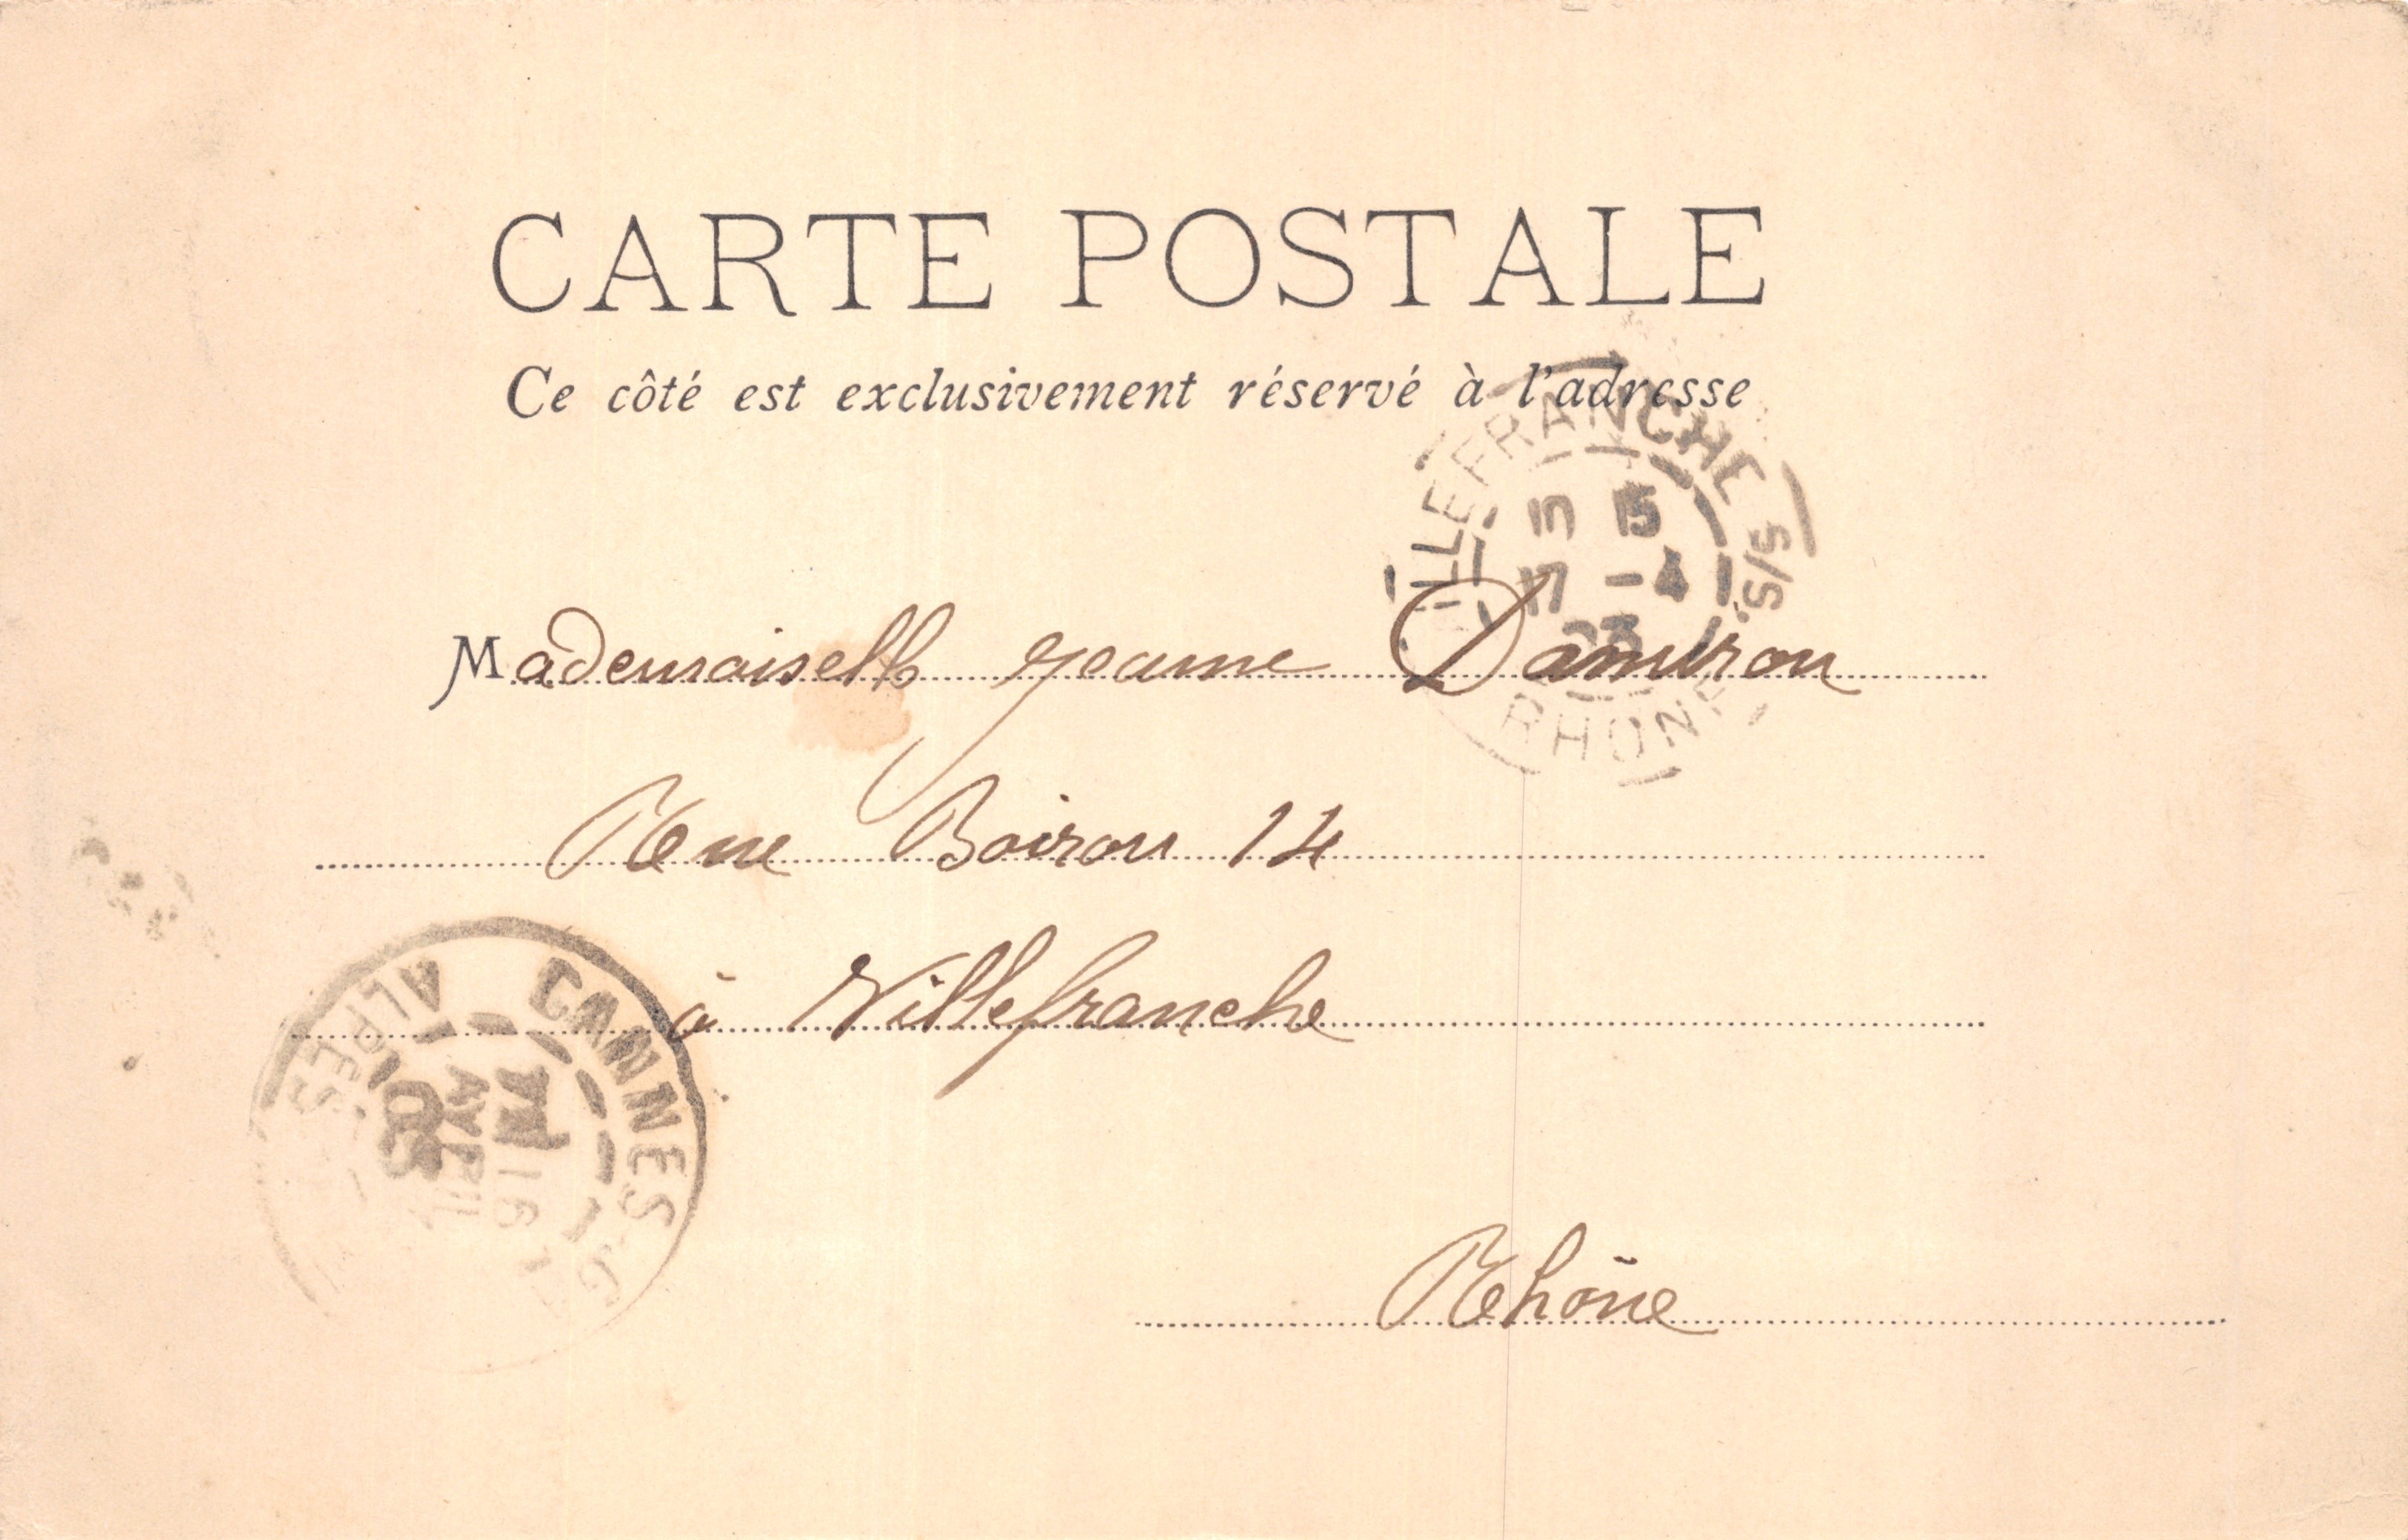 CARTE POSTALE
Ce côté est exclusivement réservé à l'adresse
VILLEFRANCHE S/S.
RHONE
Mademoiselle Jeanne Damiron
Rue Boiron 14
à Villefranche
CANNES
ALPES
AVRIL
Rhône